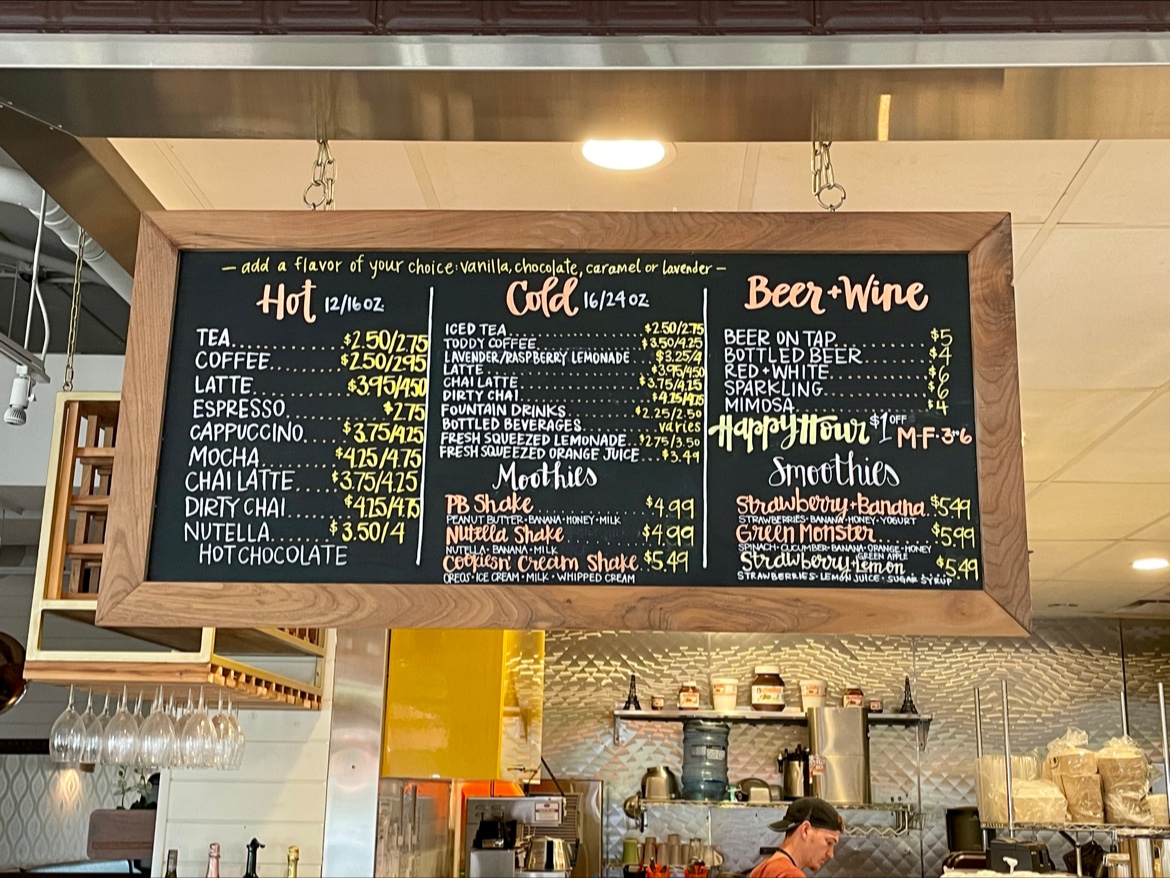 — add a flavor of your choice: vanilla, chocolate, caramel or lavender —
Hot 12/16 OZ.
TEA.............$2.50/2.75
COFFEE.........$2.50/2.95
LATTE..........$3.95/4.50
ESPRESSO..........$2.75
CAPPUCCINO....$3.75/4.25
MOCHA.........$4.25/4.75
CHAI LATTE.....$3.75/4.25
DIRTY CHAI......$4.25/4.75
NUTELLA.......$3.50/4
HOT CHOCOLATE
Cold 16/24 OZ.
ICED TEA..................$2.50/2.75
TODDY COFFEE..............$3.50/4.25
LAVENDER/RASPBERRY LEMONADE...$3.25/4
LATTE.....................$3.95/4.50
CHAI LATTE................$3.75/4.25
DIRTY CHAI................$4.25/4.75
FOUNTAIN DRINKS..........$2.25/2.50
BOTTLED BEVERAGES.........varies
FRESH SQUEEZED LEMONADE...$2.75/3.50
FRESH SQUEEZED ORANGE JUICE...$3.49
Moothies
PB Shake..........$4.99
PEANUT BUTTER • BANANA • HONEY • MILK
Nutella Shake..........$4.99
NUTELLA • BANANA • MILK
Cookies n' Cream Shake.$5.49
OREOS • ICE CREAM • MILK • WHIPPED CREAM
Beer + Wine
BEER ON TAP............$5
BOTTLED BEER.........$4
RED + WHITE............$6
SPARKLING.............$6
MIMOSA................$4
Happy Hour $1 OFF M-F • 3-6
Smoothies
Strawberry + Banana.$5.49
STRAWBERRIES • BANANA • HONEY • YOGURT
Green Monster........$5.99
SPINACH • CUCUMBER • BANANA • ORANGE • HONEY
GREEN APPLE
Strawberry + Lemon....$5.49
STRAWBERRIES • LEMON JUICE • SUGAR SYRUP